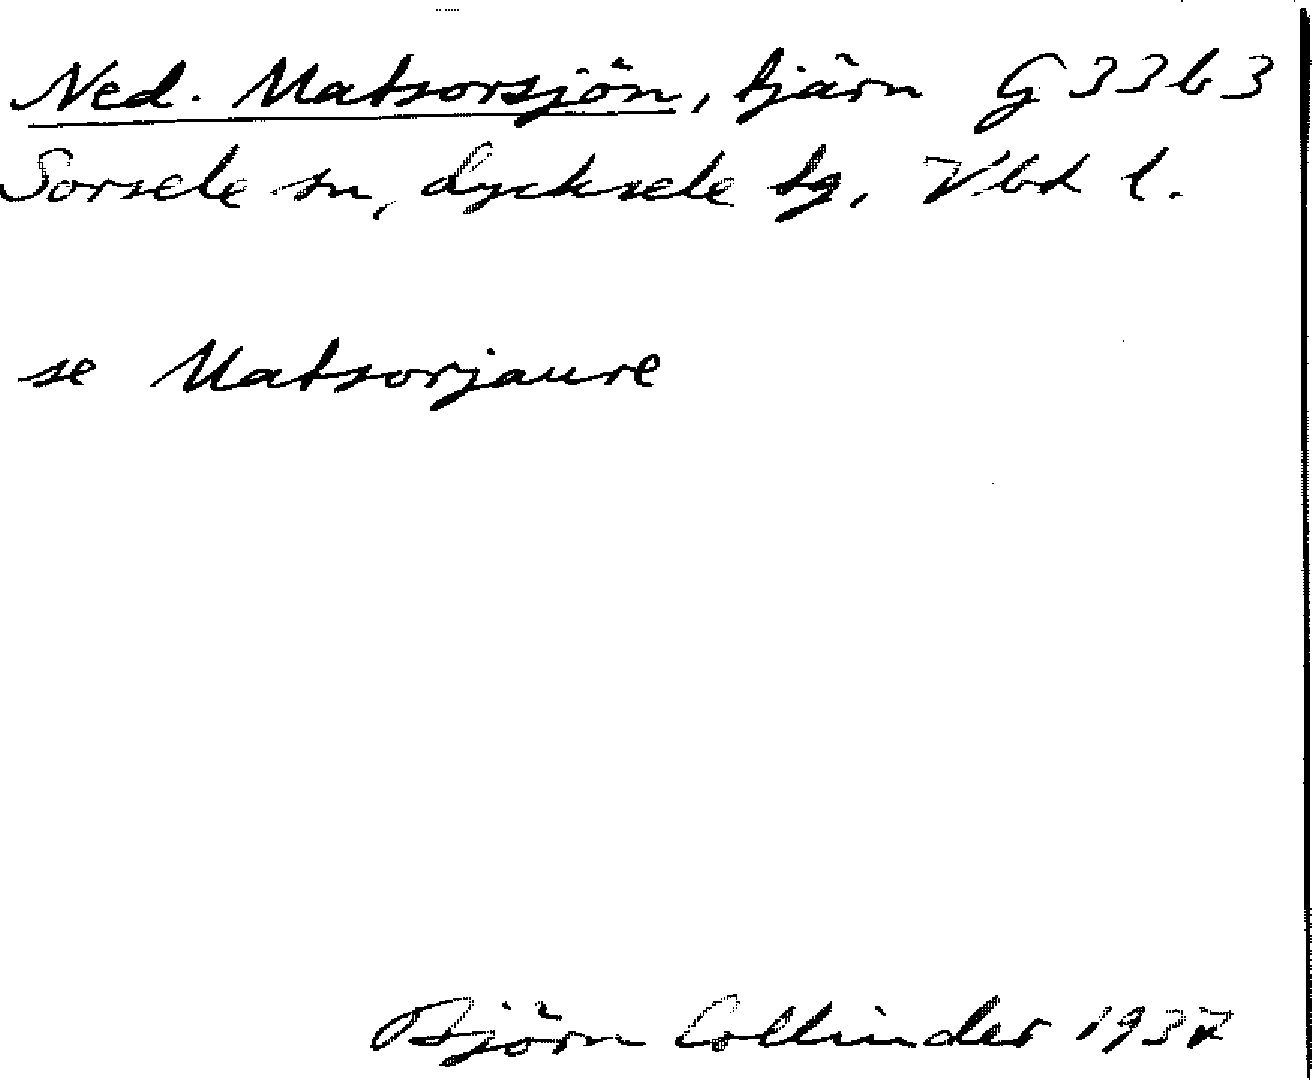 Ned. Matsorsjön, tjärn G33b3
Sorsele sn, Lycksele tg, Vbt l.
se Matsorjaure
Björn Collinder 1937